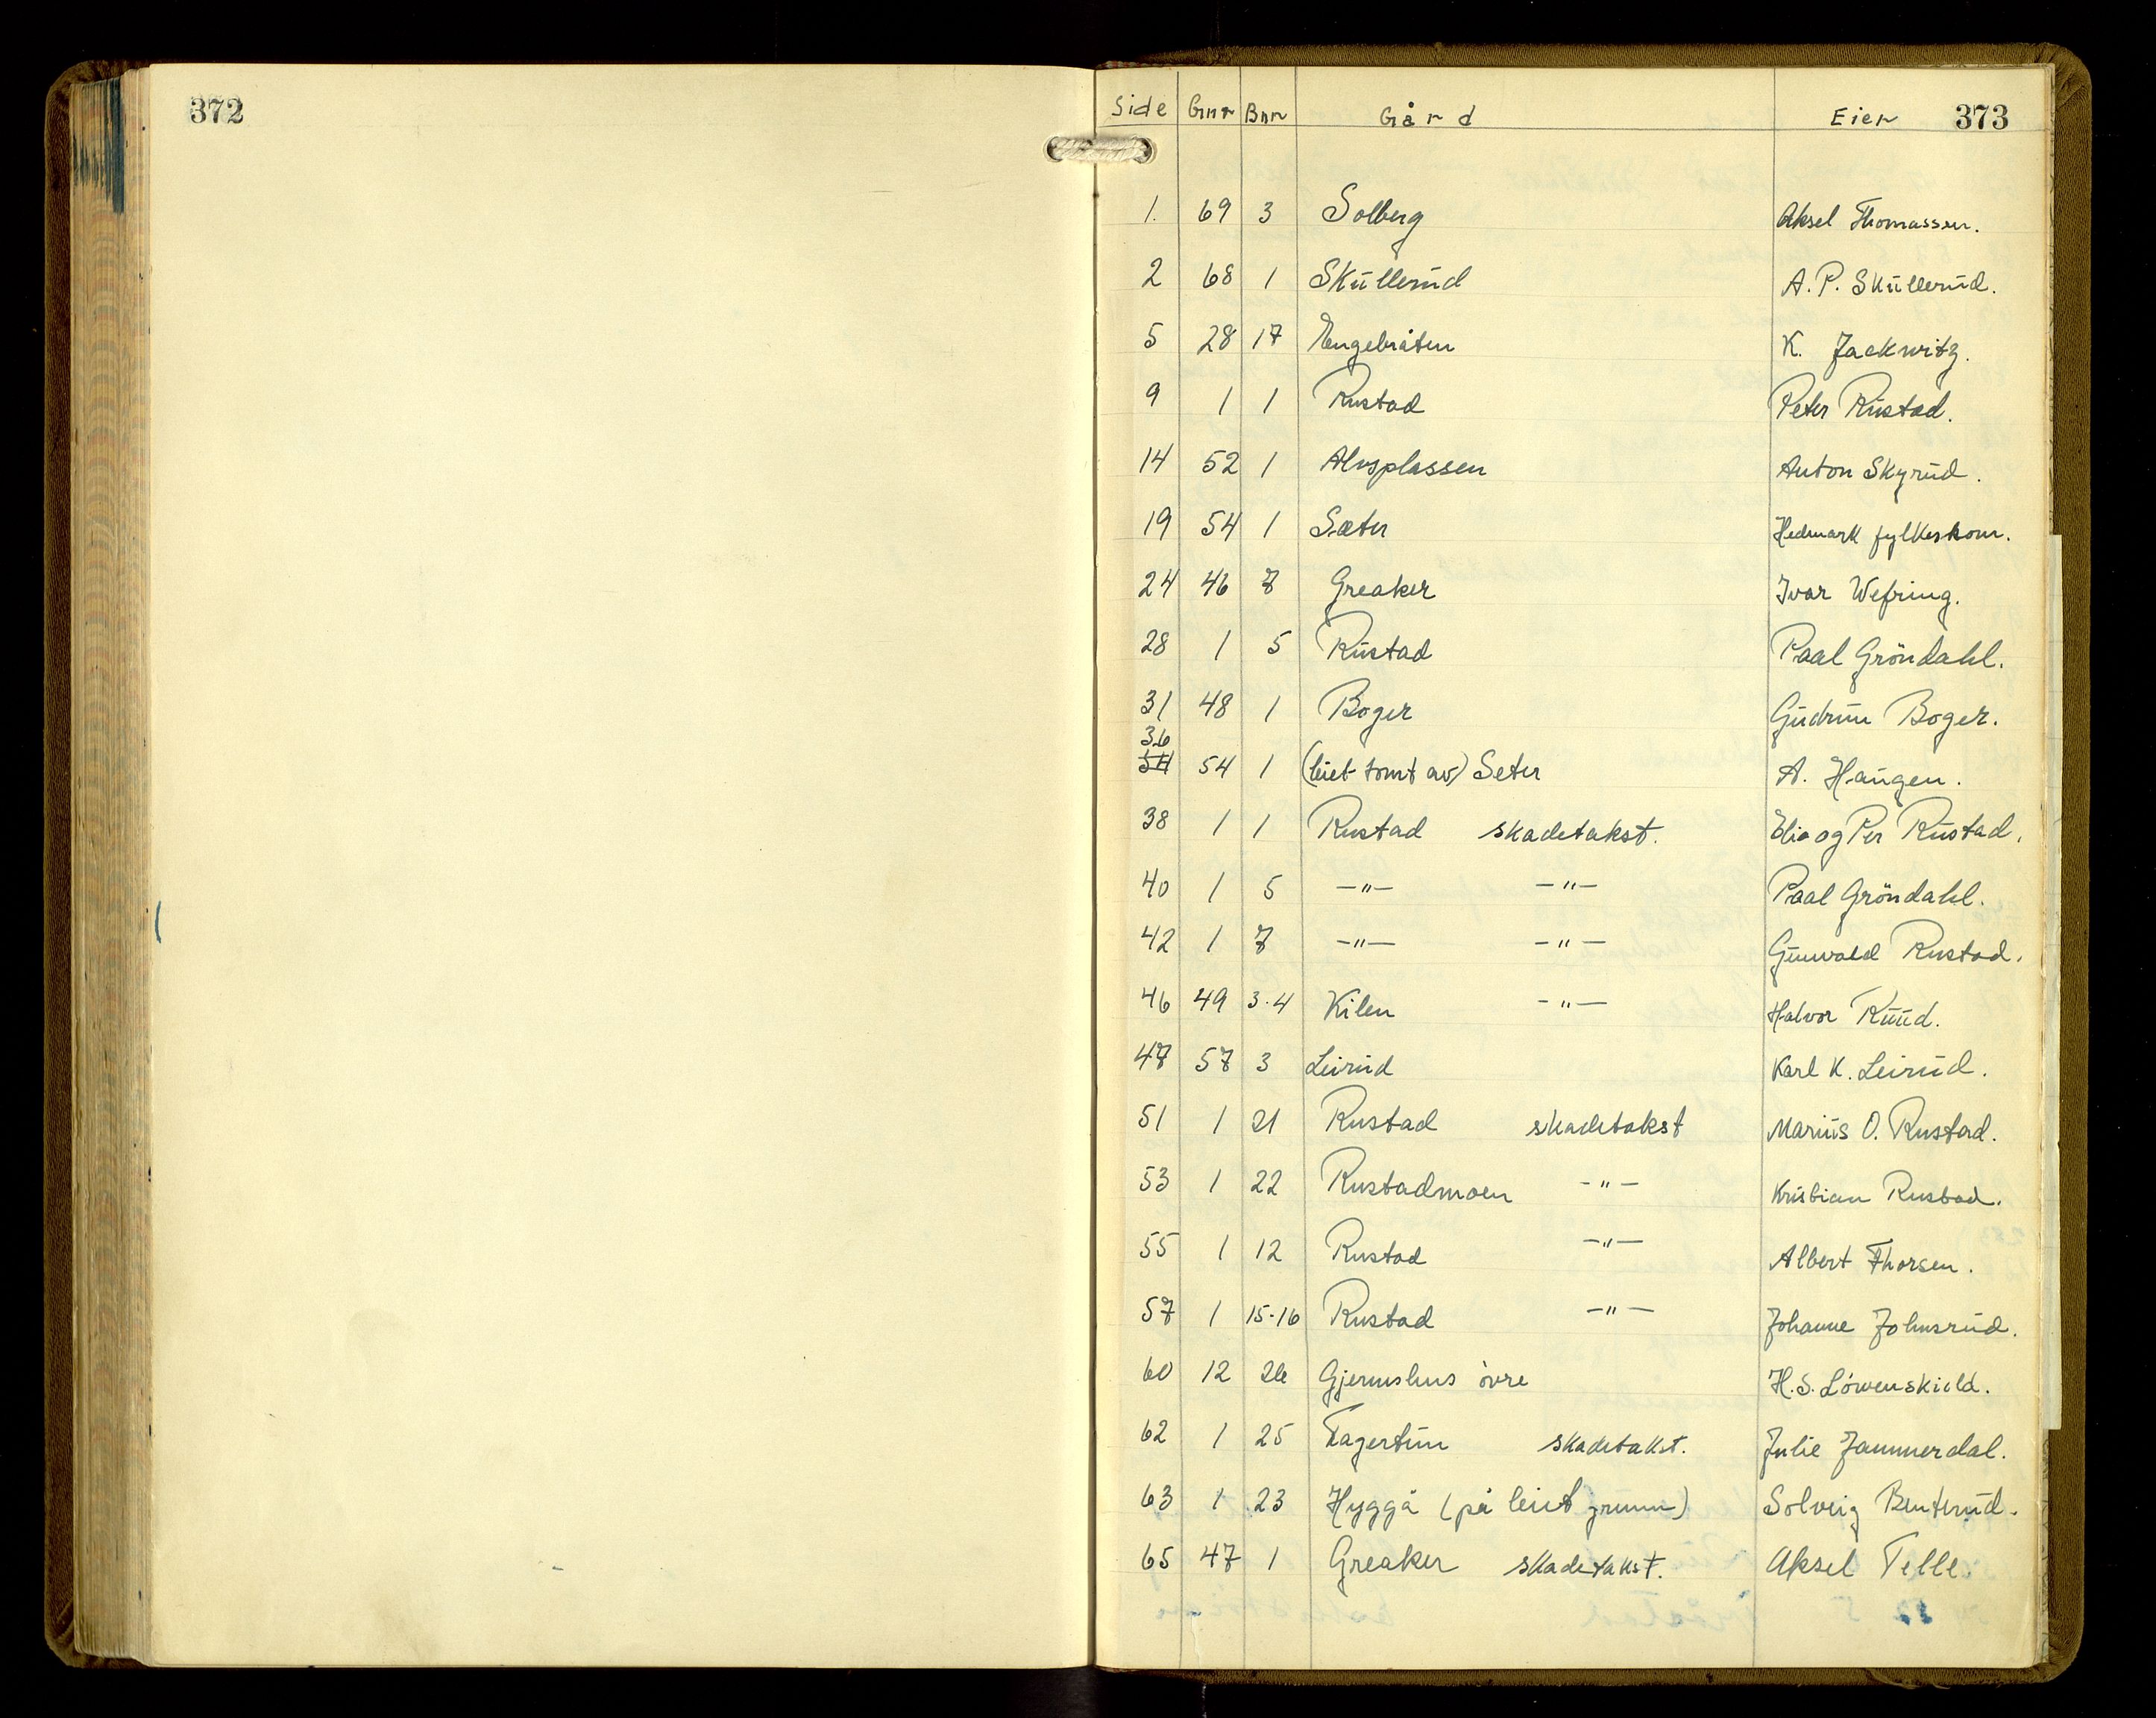 372
Side Gnr Bnr Gård Eier 373
1. 69 3 Solberg Aksel Thomassen.
2 68 1 Skullerud A. P. Skullerud.
5 28 17 Engebråten K. Jackwitz.
9 1 1 Rustad Peter Rustad.
14 52 1 Alvsplassen Anton Skyrud.
19 54 1 Sæter Hedmark fylkeskom.
24 46 7 Greaker Ivar Wefring.
28 1 5 Rustad Paal Gröndahl.
31 48 1 Boger Gudrun Boger.
36
54 54 1 (leiet tomt av) Seter A. Haugen.
38 1 1 Rustad skadetakst. Elia og Per Rustad.
40 1 5 —"— —"— Paal Gröndahl.
42 1 7 —"— —"— Gunvald Rustad.
46 49 3-4 Kilen —"— Halvor Ruud.
47 57 3 Leirud Karl K. Leirud.
51 1 21 Rustad skadetakst Marius O. Rustad.
53 1 22 Rustadmoen —"— Kristian Rustad.
55 1 12 Rustad —"— Albert Thorsen.
57 1 15-16 Rustad —"— Johanne Johnsrud.
60 12 26 Gjermshus övre H. S. Löwenskiold.
62 1 25 Fagertun skadetakst. Julie Jammerdal.
63 1 23 Hyggå (på leiet grunn) Solveig Benterud.
65 47 1 Greaker skadetakst. Aksel Telle.